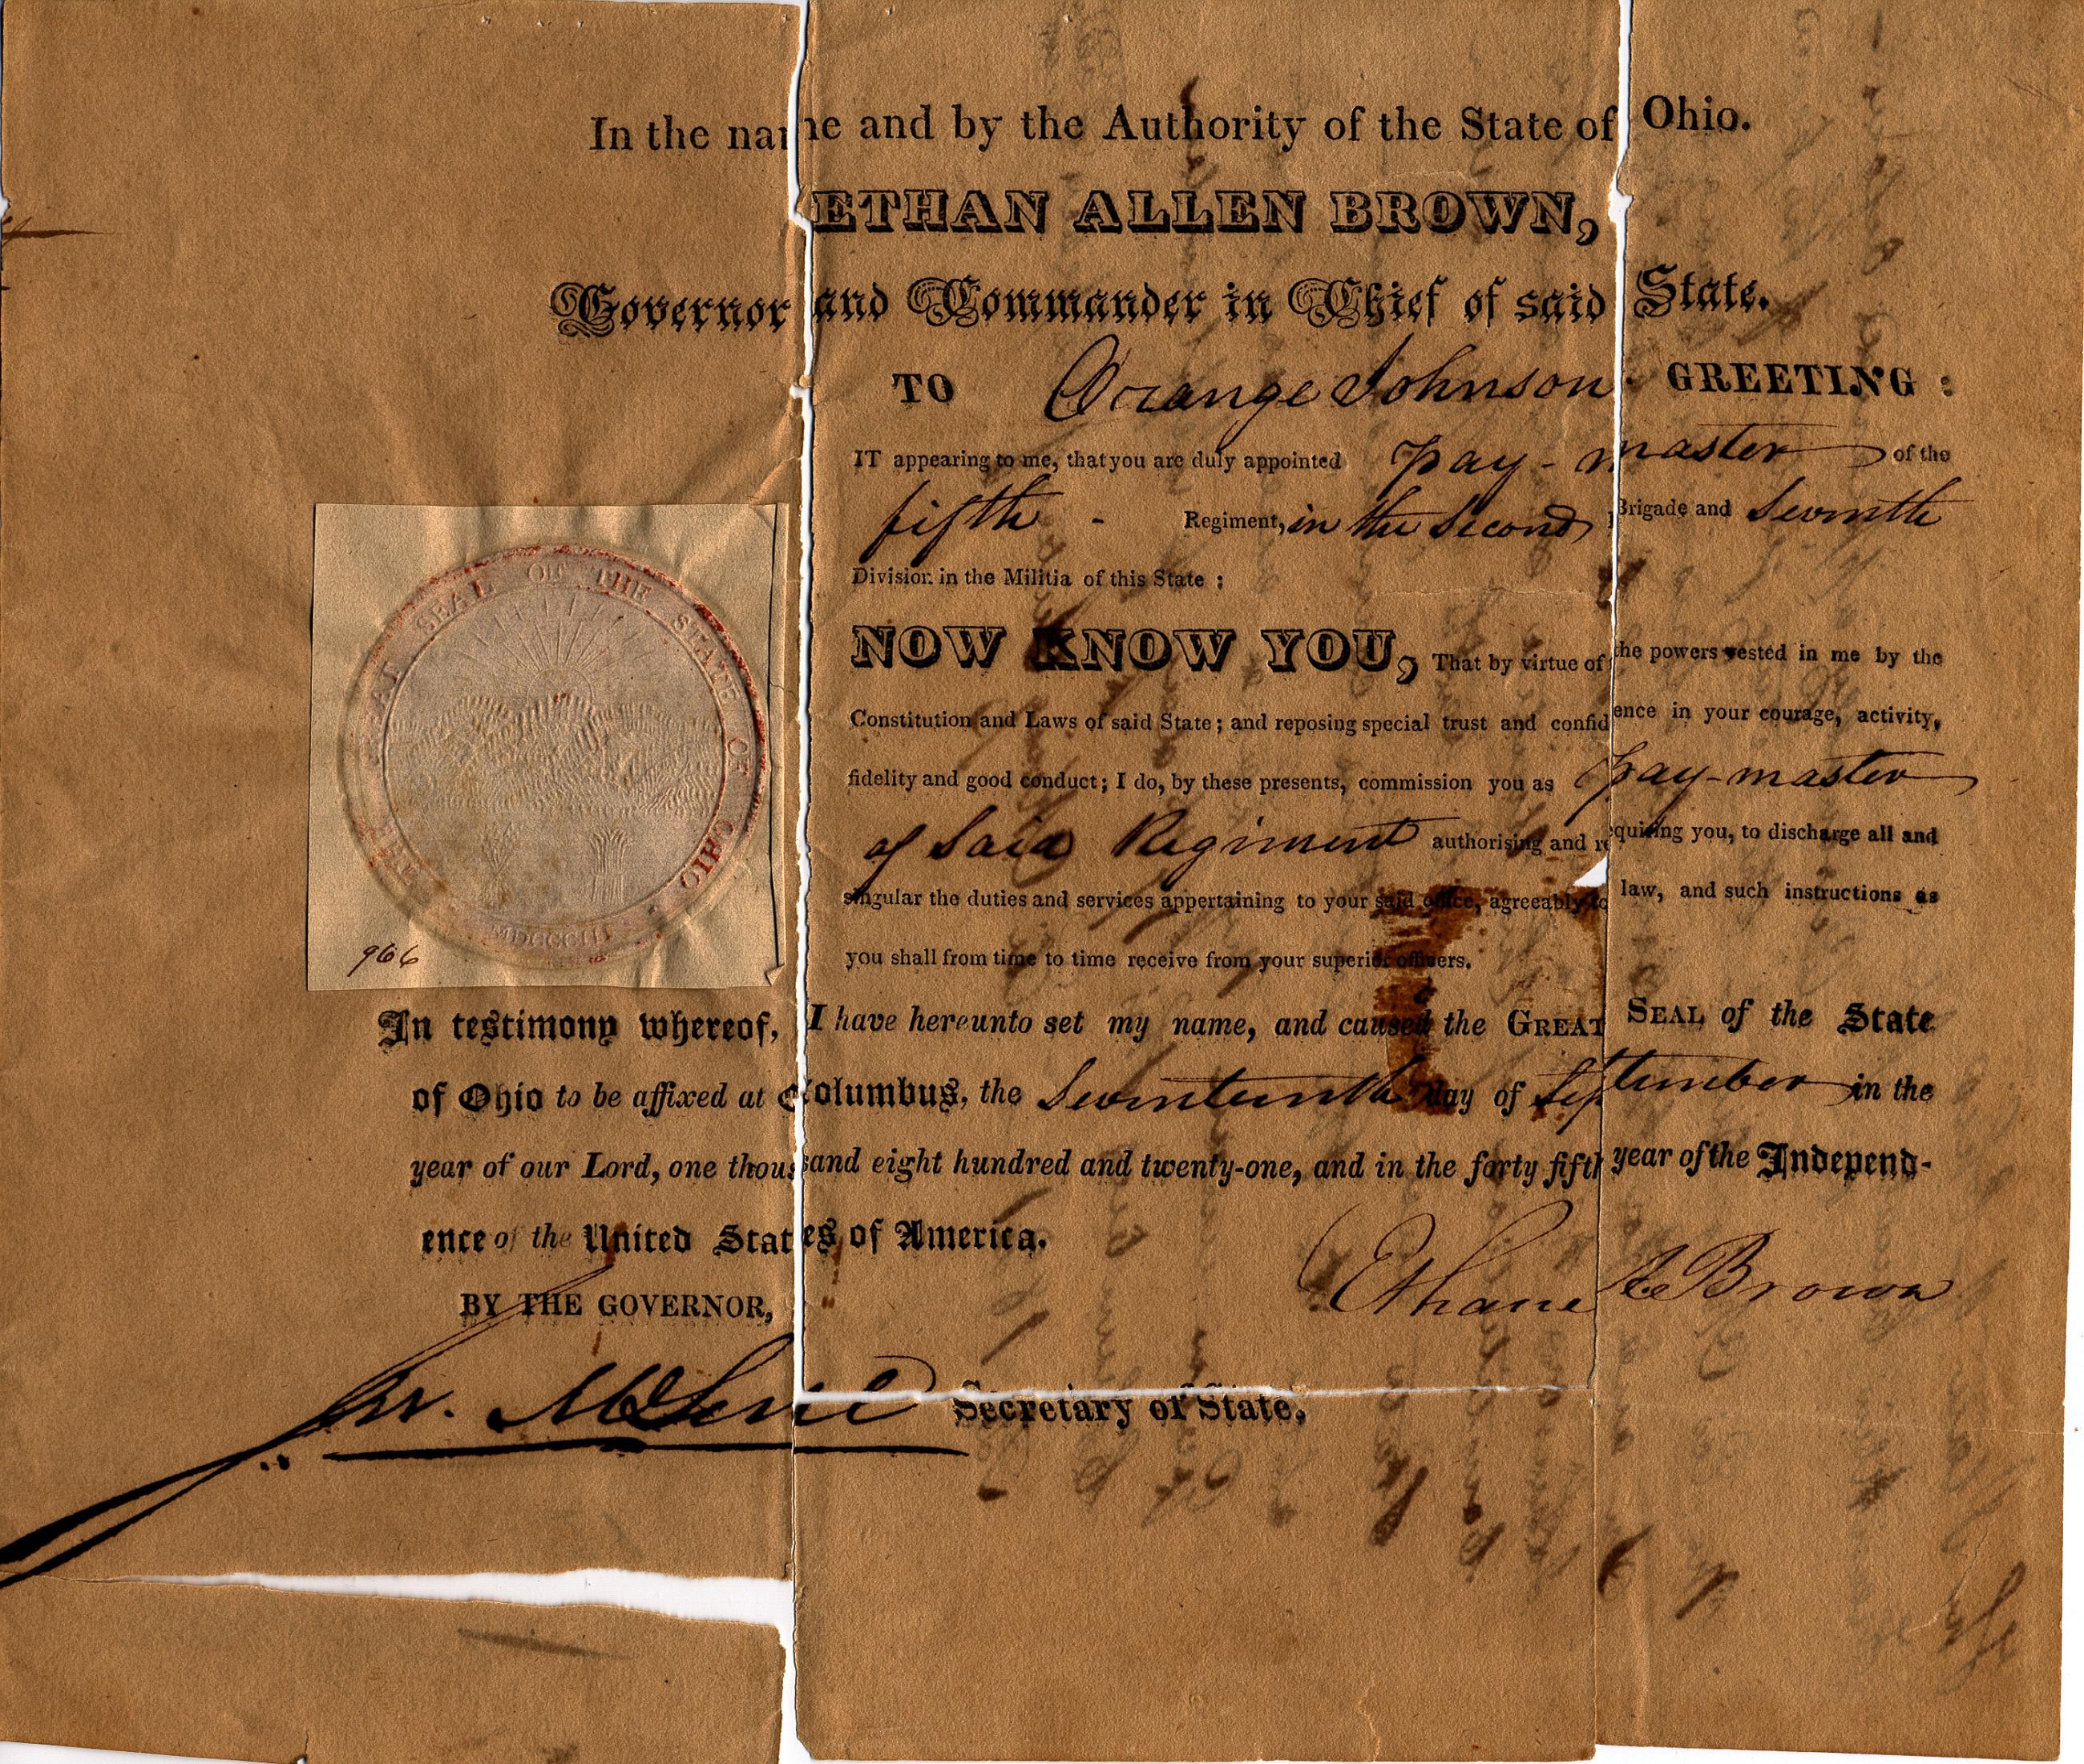 In the name and by the Authority of the State of Ohio.
ETHAN ALLEN BROWN,
Governor and Commander in Chief of said State.
TO Orange Johnson GREETING:
IT appearing to me, that you are duly appointed pay-master of the
fifth - Regiment, in the second Brigade and Seventh
Division in the Militia of this State;
NOW KNOW YOU, That by virtue of the powers vested in me by the
Constitution and Laws of said State; and reposing special trust and confidence in your courage, activity,
fidelity and good conduct; I do, by these presents, commission you as pay-master
of said Regiment authorising and requiring you, to discharge all and
singular the duties and services appertaining to your said office, agreeably to law, and such instructions as
you shall from time to time receive from your superior officers.
THE GREAT SEAL OF THE STATE OF OHIO
MDCCCII
966
In testimony whereof, I have hereunto set my name, and caused the GREAT SEAL of the State
of Ohio to be affixed at Columbus, the Seventeenth day of September in the
year of our Lord, one thousand eight hundred and twenty-one, and in the forty fifth year of the Independ-
ence of the United States of America.
Ethan A Brown
BY THE GOVERNOR,
Jer. McLene Secretary of State.